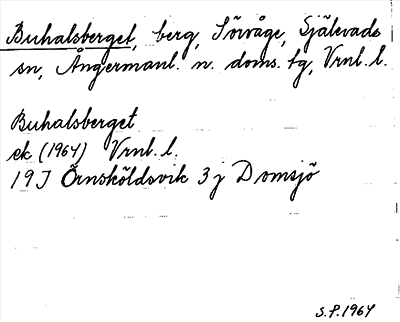 Buhalsberget, berg, Sörvåge, Själevads
sn, Ångermanl. n. doms. tg, Vrnl. l.
Buhalsberget
ek (1964) Vrnl. l.
19J Örnsköldsvik 3 j Domsjö
S.P. 1964